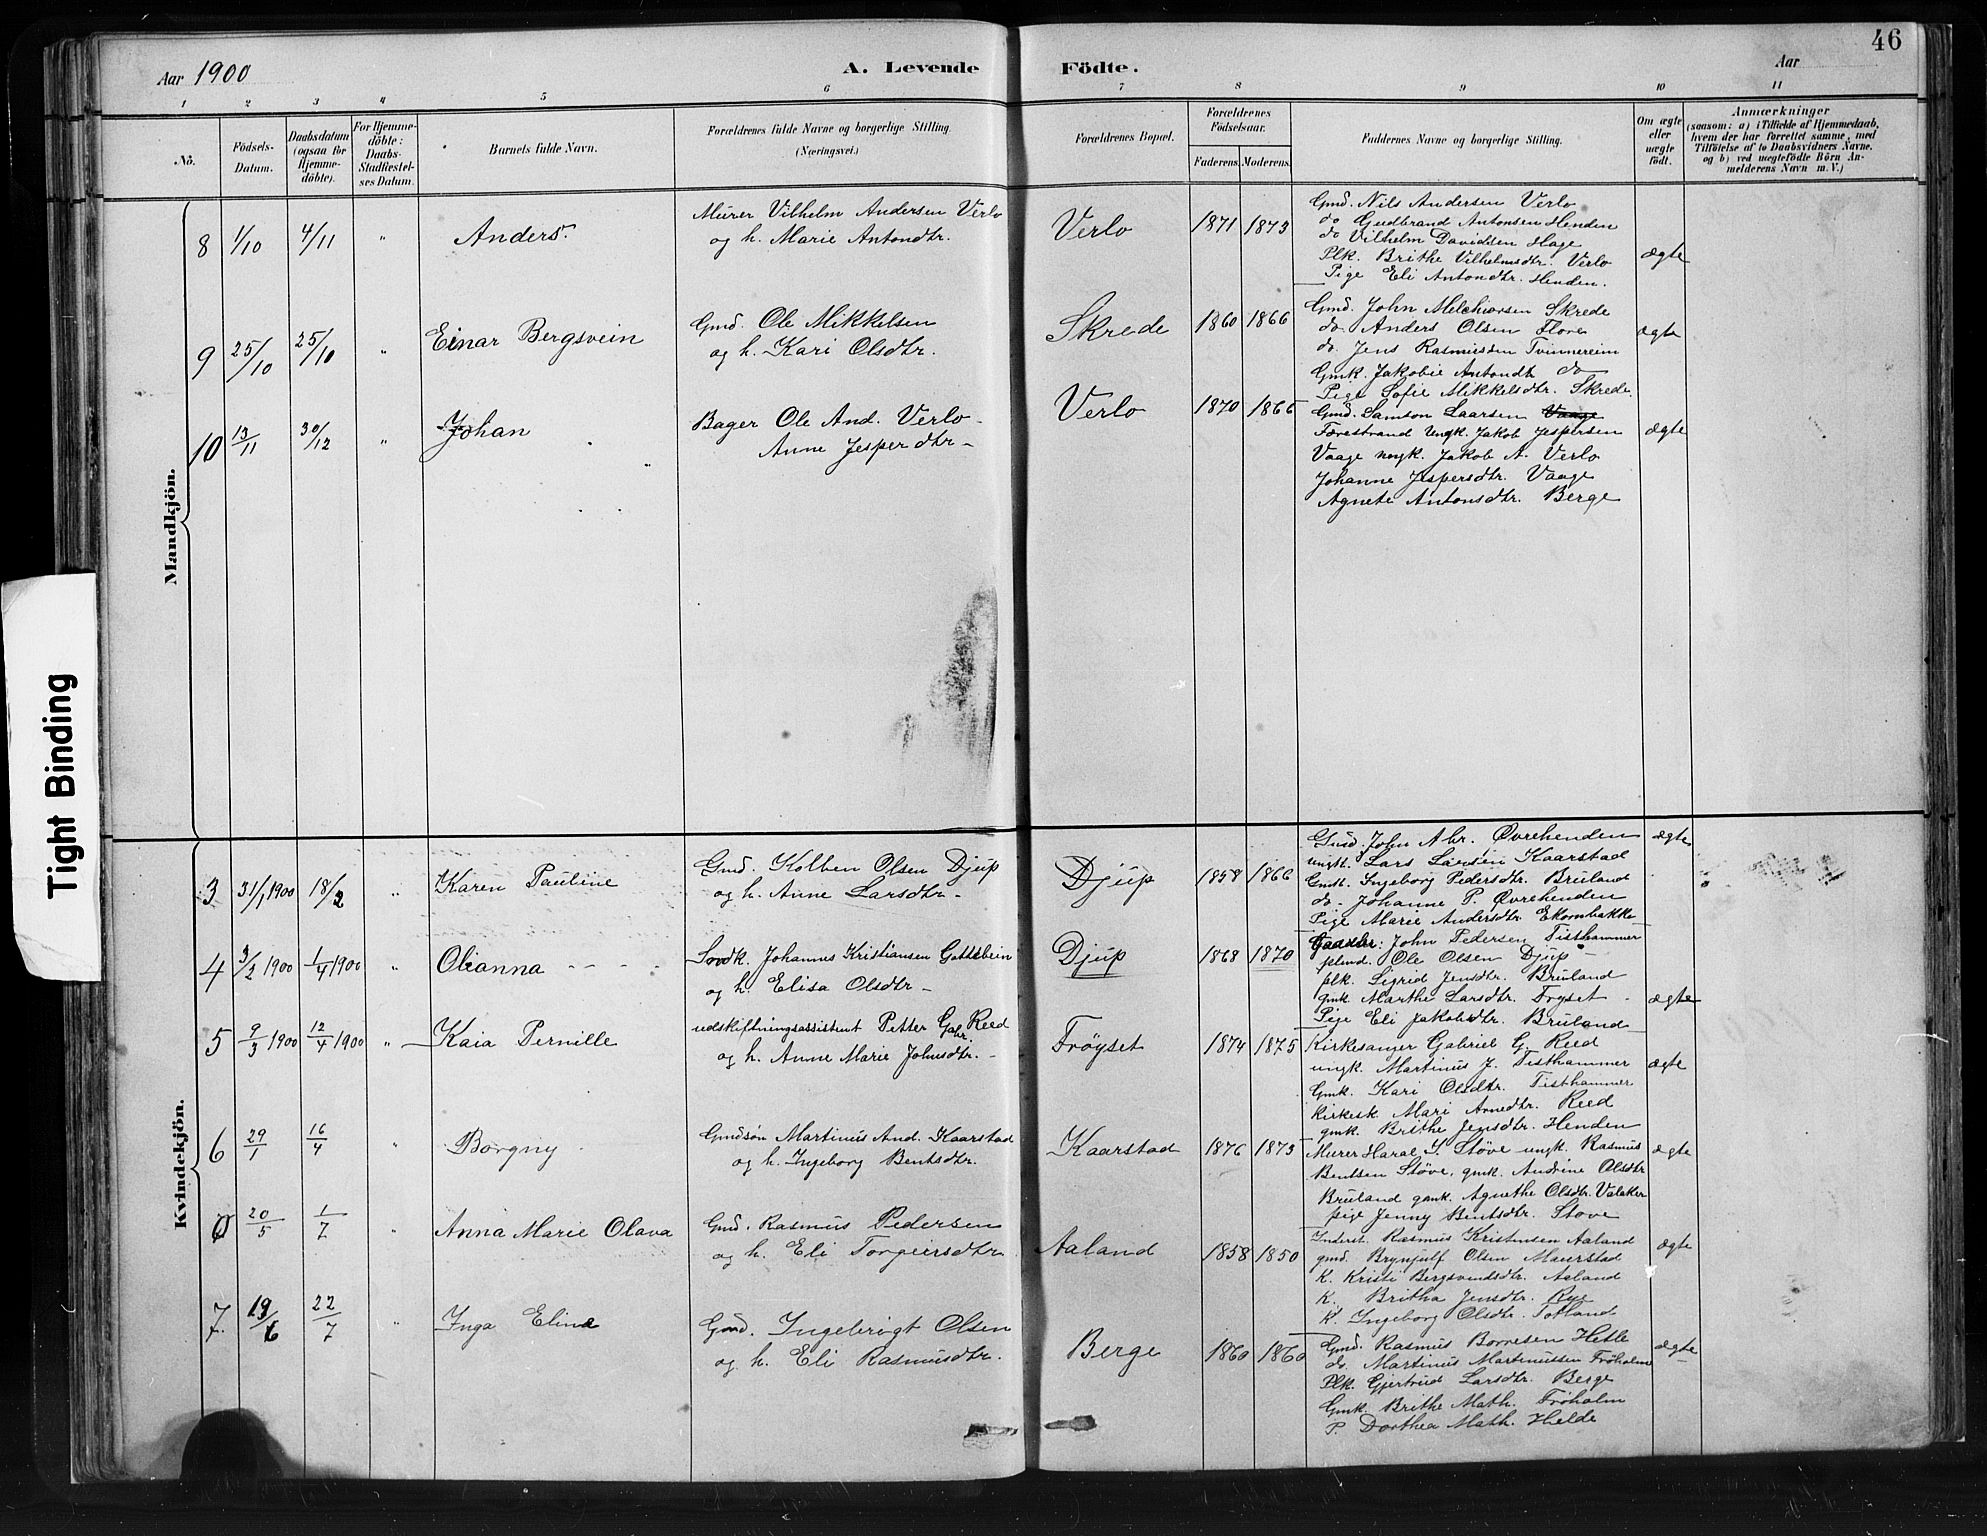 46
Aar 1900
A. Levende Födte.
Aar
1 2 3 4 5 6 7 8 9 10 11
No.
Födsels-Datum.
Daabsdatum (ogsaa for Hjemme-döbte).
For Hjemme-döbte: Daabs-Stadfæstel-ses Datum.
Barnets fulde Navn.
Forældrenes fulde Navne og borgerlige Stilling. (Næringsvei.)
Forældrenes Bopæl.
Forældrenes Födselsaar.
Faderens. Moderens.
Faddernes Navne og borgerlige Stilling.
Om ægte eller uægte født.
Anmærkninger
(saasom: a) i Tilfælde af Hjemmedaab, hvem der har forrettet samme, med Tilföielse af to Daabsvidners Navne, og b) ved uægtefödte Börn An-melderens Navn m. V.)
Mandkjön.
8 1/10 4/11 " Anders.
Murer Vilhelm Andersen Verlo
og h. Marie Antondtr.
Verlo 1871 1873
Gmd. Nils Andersen Verlo
do Gudbrand Antonsen Henden
do Vilhelm Davidsen Hage
Plk. Brithe Vilhelmsdtr. Verlo
Pige Eli Antondtr. Henden.
ægte
9 25/10 25/10 " Einar Bergsvein
Gmd. Ole Mikkelsen
og h. Kari Olsdtr.
Skrede 1860 1866
Gmd. John Melchiorsen Skrede
do. Anders Olsen Flore
do. Jens Rasmussen Tvinnereim
Gmk. Jakobie Antondt do
Pige Sofie Mikkelsdtr. Skrede
ægte
10 13/11 30/12 " Johan
Bager Ole And. Verlo-
Anne Jesperdtr-
Verlo 1870 1866
Gmd. Samson Laarsen Vaage
Færestrand Ungk. Jakob Jespersen
Vaage ungk. Jakob A. Verlo
Johanne Jespersdtr. Vaage
Agnete Antonsdtr. Berge
ægte
Tight Binding
Kvindekjön.
3 31/1 1900 18/2 " Karen Pauline
Gmd. Kolben Olsen Djup
og h. Anne Larsdtr-
Djup 1858 1866
Gmd. John Abr. Øvrehenden
ungk. Lars Larsen Kaarstad
Gmk. Ingeborg Pedersdtr. Bruland
do- Johanne P. Øvrehenden
Pige Marie Andersdtr. Ekornbakke
ægte
4 3/2 1900 1/4 1900 " Olianna
Johannes Kristiansen Gottebein
og h. Elisa Olsdtr-
Djup 1868 1870
John Pedersen Tisthammer
Ole Olsen Djup-
plk. Sigrid Jensdtr. Bruland
gmk Marthe Larsdtr. Fryset
Pige Eli Jakobsdtr. Bruland
ægte
5 9/3 1900 12/4 1900 " Kaia Pernille
udskiftningsassistent Petter Gabr. Reed
og h. Anne Marie Johnsdtr.-
Fröyset 1874 1875
Kirkesanger Gabriel G. Reed
ungk. Martinus J. Tisthammer
Gmk. Kari Olsdtr. Tisthammer
Kirkesk. Mari Arnedtr. Reed
gmk. Brithe Jensdtr. Henden
ægte
6 29/1 16/4 " Borgny
Gmdsön Martinus And. Kaarstad
og h. Ingeborg Bentsdtr.
Kaarstad 1876 1873
Murer Haral S. Støve ungk. Rasmus
Bentsen Støve, gmk. Andrine Olsdtr
Bruland gmk. Agnethe Olsdtr. Valaker
pige Jenny Bentsdtr. Støve
ægte
6 20/5 1/7 " Anna Marie Olava
Gmd. Rasmus Pedersen
og h. Eli Torgeirsdtr.
Aaland 1858 1850
Inderst. Rasmus Kristensen Aaland
gmd. Brynjulf Olsen Maurstad
K. Kristi Bergsvendsdtr. Aaland
K. Britha Jensdtr. Rys
K. Ingeborg Olsdtr. Totland
ægte
7. 19/6 22/7 " Inga Eline
Gmd. Ingebrigt Olsen
og h. Eli Rasmusdtr.
Berge 1860 1860
Gmd. Rasmus Borresen Hetle
do. Martinus Martinussen Fröholm
Plk. Gjertrud Larsdtr. Berge
Gmk. Brithe Math. Fröholm
P. Dorthea Math. Hjelde
ægte